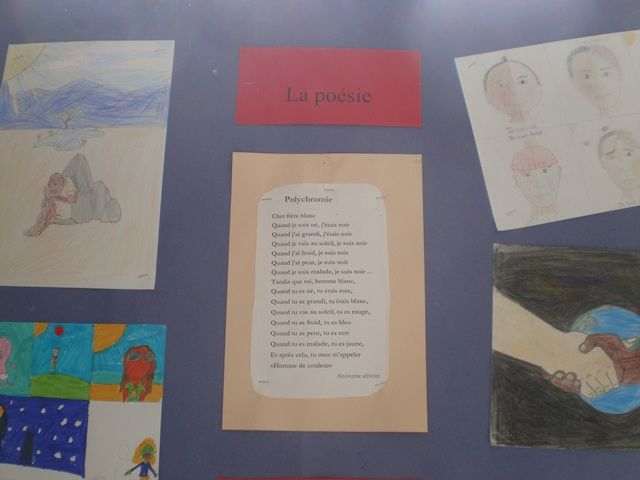 La poésie
Polychromie
Cher frère blanc
Quand je suis né, j'étais noir
Quand j'ai grandi, j'étais noir
Quand je vais au soleil, je suis noir
Quand j'ai froid, je suis noir
Quand j'ai peur, je suis noir
Quand je suis malade, je suis noir ...
Tandis que toi, homme blanc,
Quand tu es né, tu étais rose,
Quand tu as grandi, tu étais blanc,
Quand tu vas au soleil, tu es rouge,
Quand tu as froid, tu es bleu
Quand tu as peur, tu es vert
Quand tu es malade, tu es jaune,
Et après cela, tu oses m'appeler
«Homme de couleur»
Anonyme africain